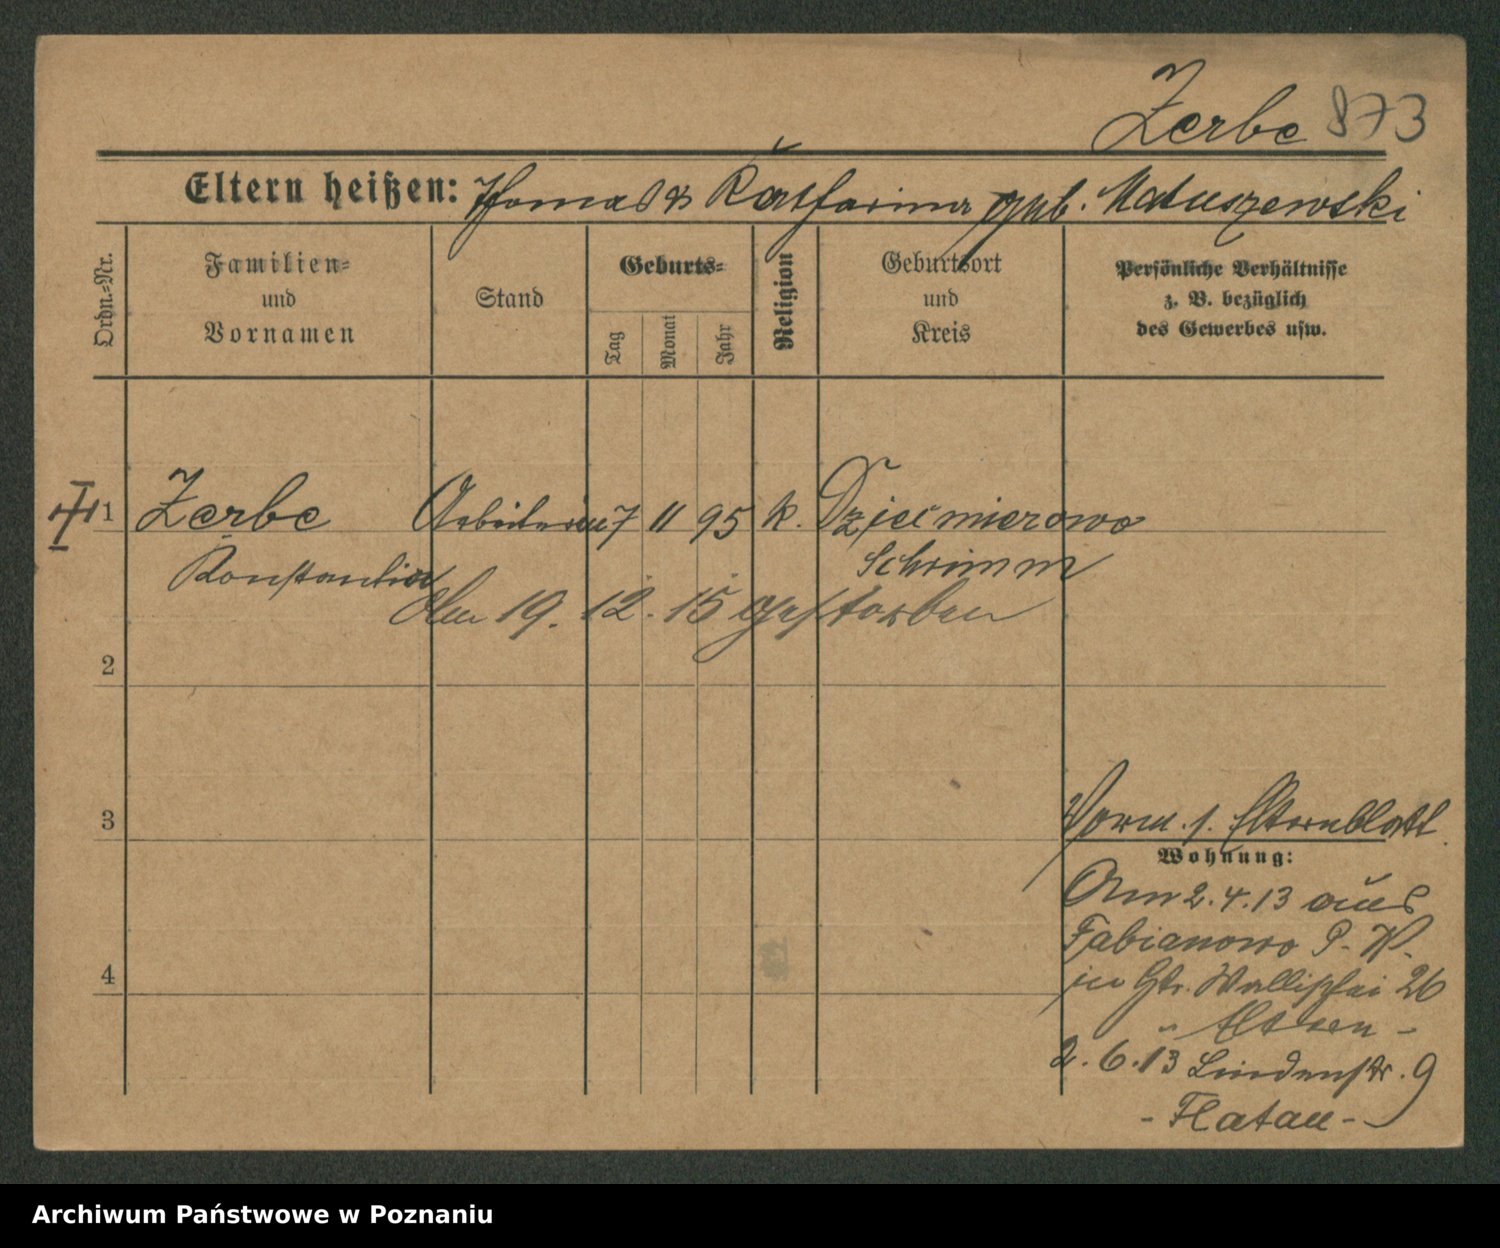 Zerbe 873
Eltern heißen: Thomas & Katharina geb. Matuszewski
Ordn.-Nr.
Familien-
und
Vornamen
Stand
Geburts-
Tag
Monat
Jahr
Religion
Geburtsort
und
Kreis
Persönliche Verhältnisse
z. B. bezüglich
des Gewerbes usw.
1 Zerbe Arbeiterin 7 11 95 k. Dziećmierowo
Konstantia Schrimm
Am 19. 12. 15 gestorben
2
3
Vorm. s. Elternblatt
Wohnung:
Am 2. 4. 13 aus
Fabianowo P. W.
in Gr. Wallischei 26
- Eltern -
2. 6. 13 Lindenstr. 9
- Flatau -
4
Archiwum Państwowe w Poznaniu